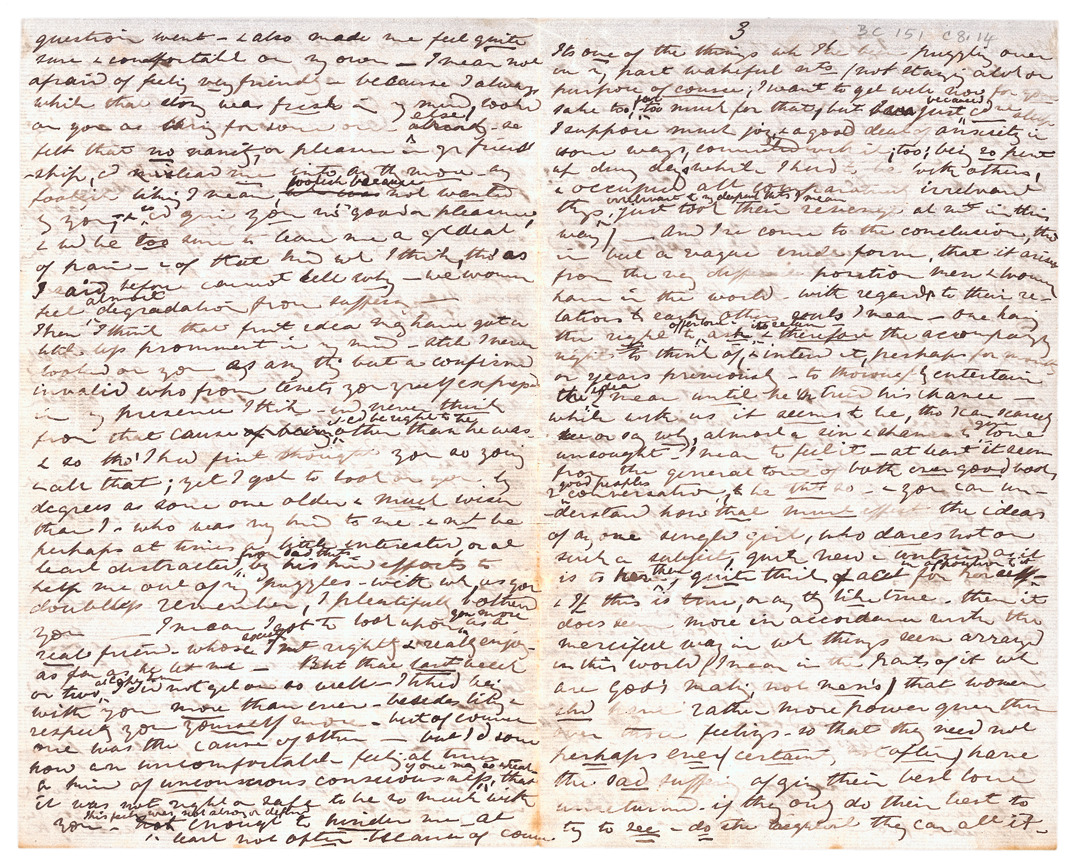 question went - & also made me feel quite
sure & comfortable on my own - I mean not
afraid of because I always
while that story was fresh in my mind, looked
on you as for some one else already - so
felt that no vanity, or pleasure in yr friend
-ship, cd mislead me into any thing more - any
foolish liking I mean, foolish because not wanted
by you, - & cd give you no good or pleasure,
& wd be too sure to leave me a gt deal
of pain - & of that kind wh I think, tho' as
I said before cannot tell why - we women
feel almost degradation from suffering -
Then I think that first idea may have got a
little less prominent in my mind - still I never
looked on you as any thing but a confirmed
invalid who from tenets you yrself expressed
in my presence I think - wd never think
from that cause it cd be right to be other than he was -
& so tho' I had first thought you so young
& all that; yet I got to look on you by
degrees as some one older & much wiser
than I - who was very kind to me - & not be
perhaps at times a little interested, or at
least distracted from sad thts by his kind efforts to
help me out of my puzzles - with wh, as you
doubtless remember, I plentifully bothered
you - I mean I got to look upon you more as a
real friend - whose society I might rightly & really enjoy -
as far as he let me - But that last week
or two, I did not get on so well - I liked being
with you more than ever - besides liking &
respecting you yourself more - but of course
one was the cause of other - but I'd some
how an uncomfortable feeling at times
a kind of unconscious consciousness, that
it was not right or safe to be so much with
you - this feeling was not strong or definite enough to hinder me - at
least not often - because of course
3
BC 151 C8.14
Its one of the things wh I've been puzzling over
in my past wakeful nts (not staying awake on
purpose of course; I want to get well now for yr
sake too, too much for that, but because just
I suppose much joy & a good deal of anxiety in
some ways, connected with it, too; being so pent
up during day while I had to be with others,
& occupied all the apparently irrelevant
things, irrelevant to my deepest thts I mean just took their revenge at nt in this
way) - And I've come to the conclusion, tho'
in but a vague crude form, that it arises
from the very different position men & women
have in the world - with regard to their re-
lations to each others souls I mean - one having
the right to offer love & ask its return & therefore the accompanying
right to think of & intend it, perhaps for months
or years previously - to thoroughly entertain
the idea I mean until he has tried his chance -
while with us it seems to be, tho I can scarcely
see or say why, almost a sin & shame to give love
unsought I mean to feel it - at least it seems
from the general tone of both even good books
& good peoples conversation, to be tht so - & you can un-
-derstand how that must affect the ideas
of any one single girl, who dares not on
such a subject, quite new & untried as it
is to her then, quite think or act for herself -
& If this is true, or any thing like true - then it
does seem more in accordance with the
merciful way in wh things seem arranged
in this world (I mean in the parts of it wh
are God's making, not men's) that women
shd have rather more power given them
over their feelings - so that they need not
perhaps ever (certainly often) have
the sad suffering of giving their best love
unreturned - if they only do their best to
try to see - & do the they can all it -